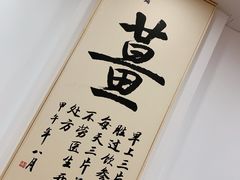 薑
早上三片
胜过饮参
每天三片
不劳医生开
处方
甲午年八月